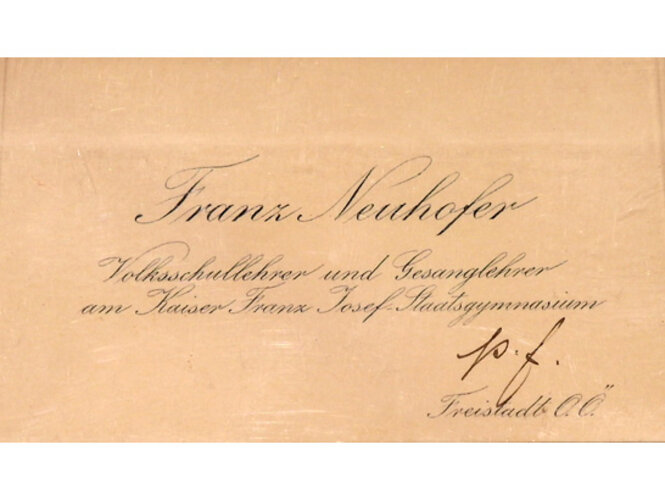 Franz Neuhofer
Volksschullehrer und Gesanglehrer
am Kaiser Franz Josef-Staatsgymnasium
p. f.
Freistadt O. Ö.